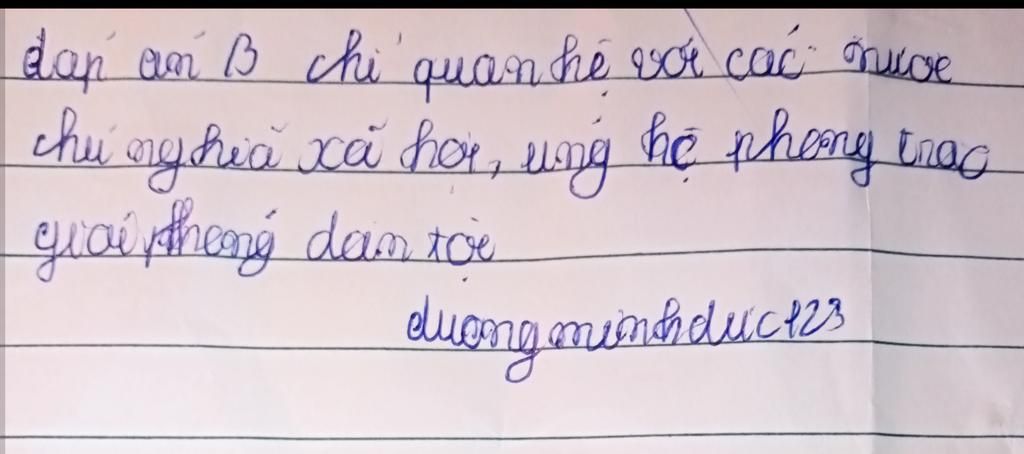 đáp án B chỉ quan hệ với các nước
chủ nghĩa xã hội, ủng hộ phong trao
giải phóng dân tộc
duongminhduc123